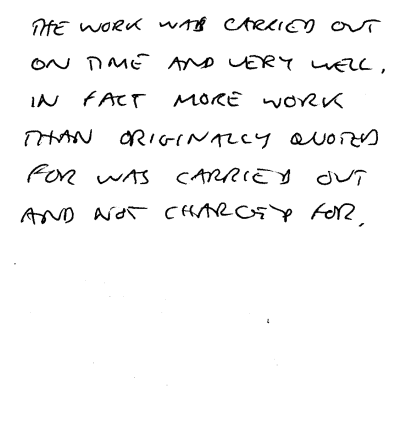 THE WORK WAS CARRIED OUT
ON TIME AND VERY WELL.
IN FACT MORE WORK
THAN ORIGINALLY QUOTED
FOR WAS CARRIED OUT
AND NOT CHARGED FOR.